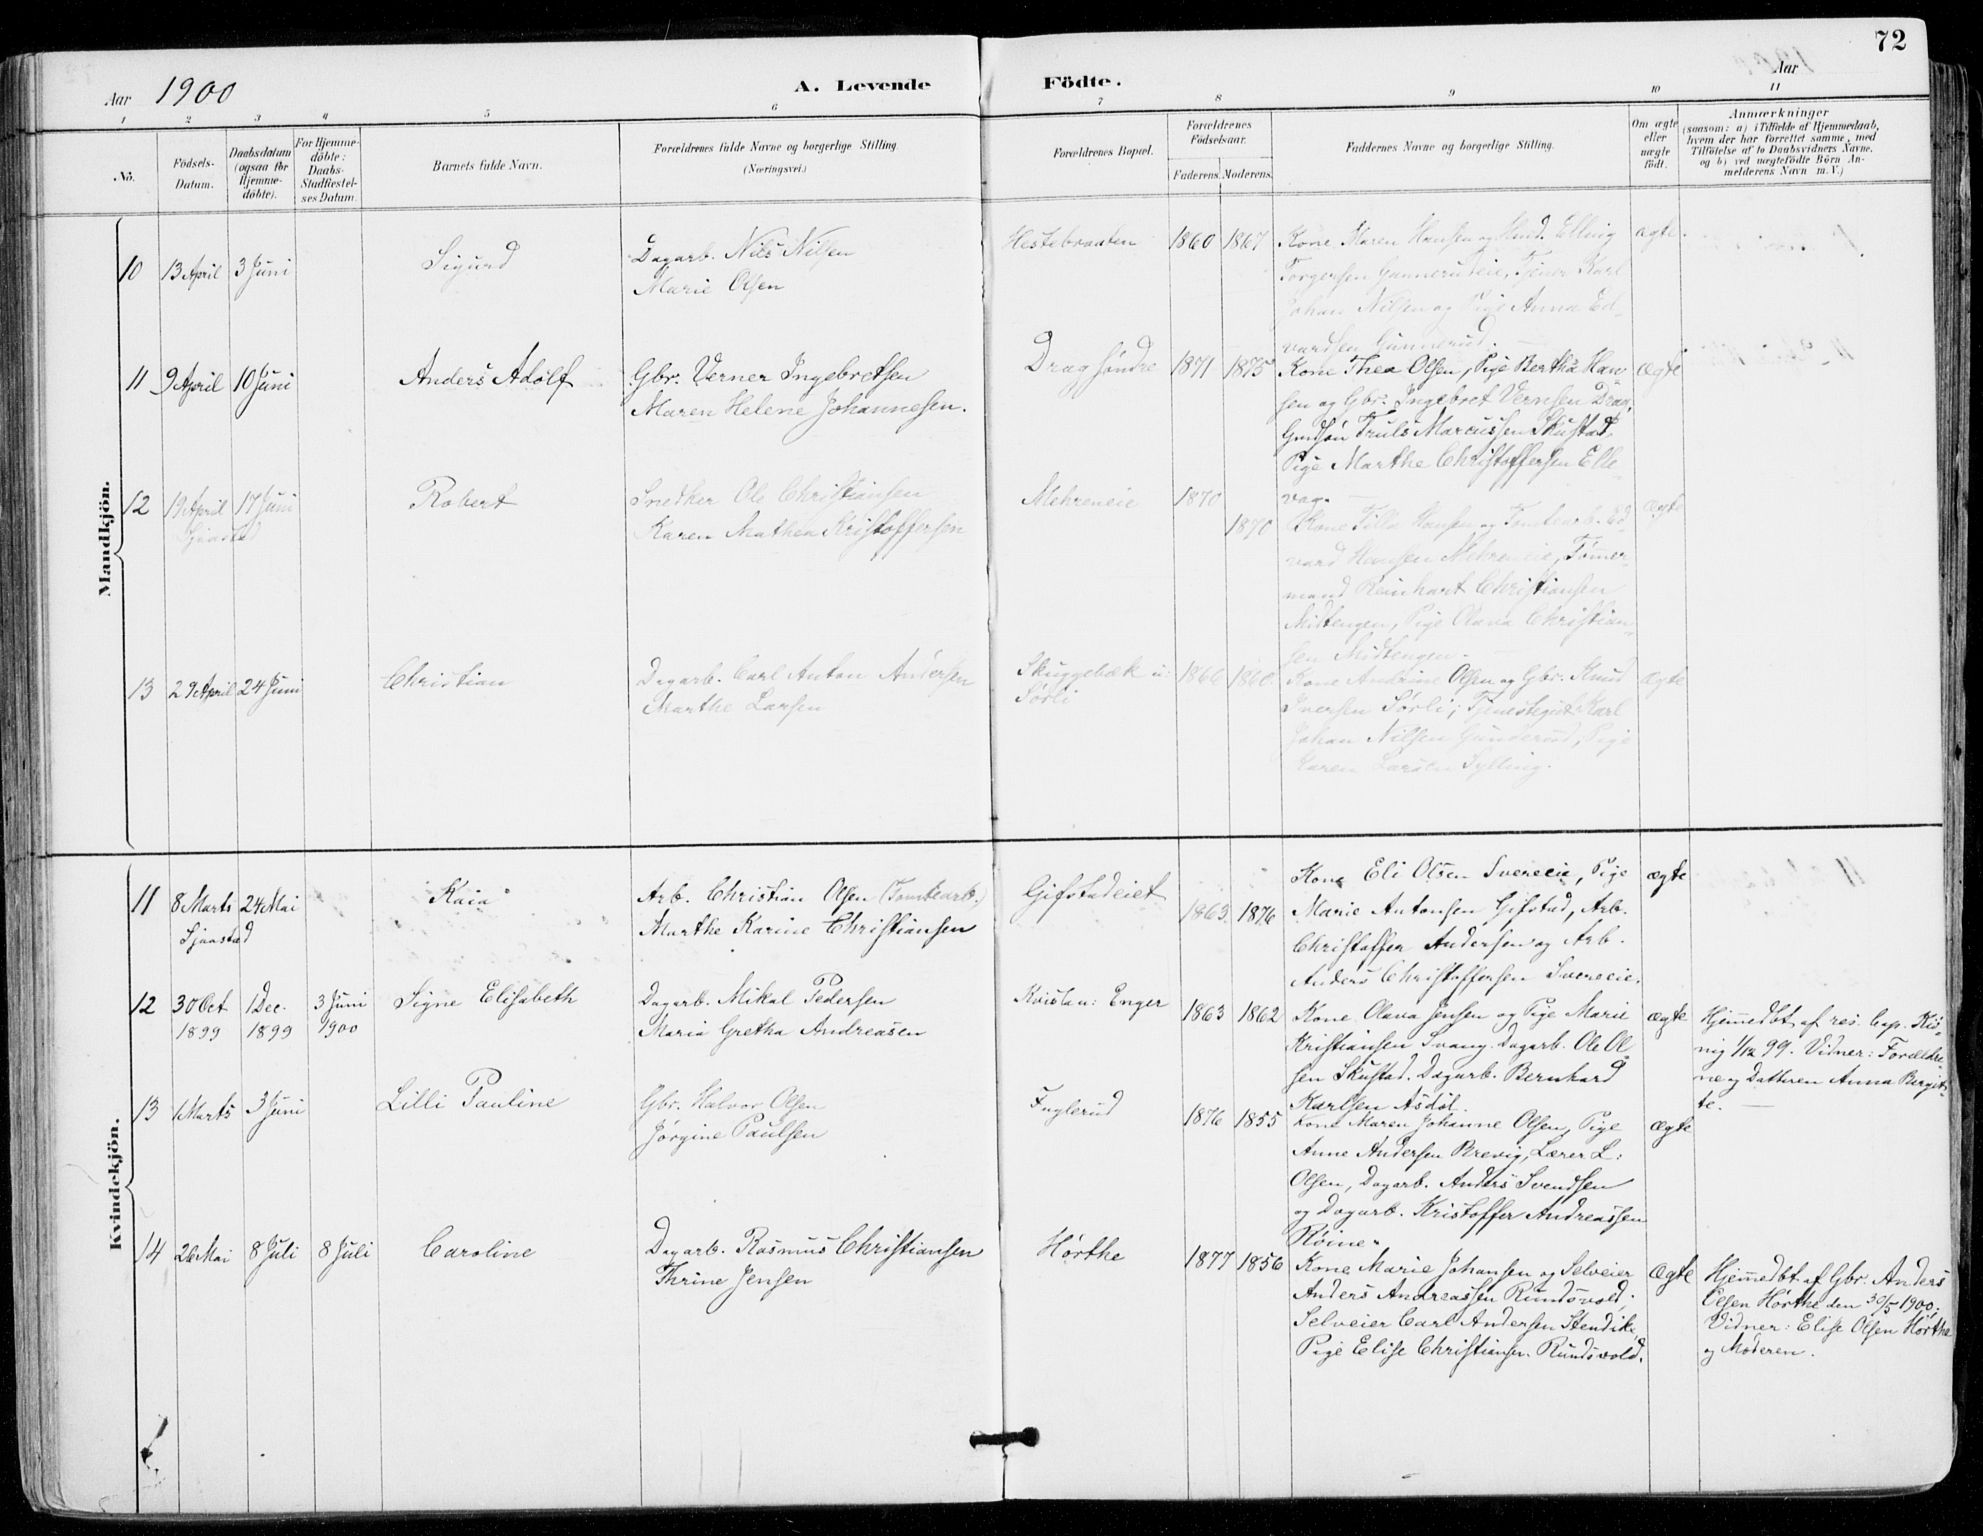 72
Aar 1900 A. Levende Födte. Aar
1 2 3 4 5 6 7 8 9 10 11
No.
Födsels-Datum.
Daabsdatum (ogsaa for Hjemmedöbte).
For Hjemmedöbte: Daabs-Stadfæstelses Datum.
Barnets fulde Navn.
Forældrenes fulde Navne og borgerlige Stilling. (Næringsvei.)
Forældrenes Bopæl.
Forældrenes Födselsaar.
Faderens. Moderens.
Faddernes Navne og borgerlige Stilling.
Om ægte eller uægte födt.
Anmærkninger
(saasom: a) i Tilfælde af Hjemmedaab,
hvem der har forrettet samme, med
Tilföielse af to Daabsvidners Navne,
og b) ved uægtefödte Börn Anmelderens
Navn m. V.)
Mandkjön.
10 13 April 3 Juni Sigurd
Dagarb. Nils Nilsen
Marie Olsen
Hestebraaten 1860 1867
Kone Maren Hansen og Elling
Torgersen Gunnerudeie, Tjener Karl
Johan Nilsen og Pige Anna Ed-
vardsen Gunnerud.
ægte.
11 9 April 10 Juni Anders Adolf
Gbr. Verner Ingebretsen
Maren Helene Johannesen.
Drag söndre 1871 1875
Kone Thea Olsen, Pige Bertha Han
sen og Gbr. Ingebret Vernsen Drag,
Gmdsön Truls Marcussen Skustad,
Pige Marthe Christoffersen Elle-
vag.
ægte
12 19 April 17 Juni Robert
Sjaastad
Snedker Ole Christiansen
Karen Mathea Kristoffersen
Mehreneie 1870
1870
Kone Tilla Hansen og Tomtearb. Ed
vard Hansen Mehreneie, Tömmer-
mand Reinhart Christiansen
Midtengen, Pige Olava Christian-
sen Midtengen.
ægte
13 29 April 24 Juni Christian
Dagarb. Carl Anton Andersen
Marthe Larsen
Skuggebæk u:
Sörli
1866 1860.
Kone Andrine Olsen og Gbr. Knud
Iversen Sörli; Tjenestegut Karl
Johan Nilsen Gunderud, Pige
Karen Larsen Sylling.
ægte
Kvindekjön.
11 8 Marts 24 Mai Kaia
Sjaastad
Arb. Christian Olsen (Tomtearb.)
Marthe Karine Christiansen
Gifstadeiet 1863 1876
Kone Eli Olsen Svereeie, Pige
Marie Antonsen Gifstad, Arb.
Christoffer Andersen og Arb.
Anders Christoffersen Svereeie.
ægte
12 30 Oct 1899 1 Dec. 1899 3 Juni 1900 Signe Elisabeth
Dagarb. Mikal Pedersen
Maria Gretha Andreasen
Kvistan: Enger 1863 1862
Kone Olava Jensen og Pige Marie
Kristiansen Svang. Dagarb. Ole Ol-
sen Skustad. Dagarb. Bernhard
Karlsen Asdöl.
ægte
Hjemmedbt af res. Cap. Kö-
nig 1/12 99. Vidner: Forældre-
ne og Datteren Anna Bergit-
te.
13 1 Marts 3 Juni Lilli Pauline
Gbr. Halvor Olsen
Jörgine Paulsen
Fuglerud 1876 1855
Kone Maren Johanne Olsen, Pige
Anne Andersen Brevig, Lærer L:
Olsen, Dagarb. Anders Svendsen
og Dagarb. Kristoffer Andreassen
Röine.
ægte
14 26 Mai 8 Juli 8 Juli Caroline
Dagarb. Rasmus Christiansen
Thrine Jensen
Hörthe 1877 1856
Kone Marie Johansen og Selveier
Anders Andreassen Rundsvold.
Selveier Carl Andersen Stendik,
Pige Elise Christiansen Rundsvold.
ægte
Hjemmedbt af Gbr. Anders
Olsen Hörthe den 30/5 1900.
Vidner: Elise Olsen Hörthe
og Moderen.